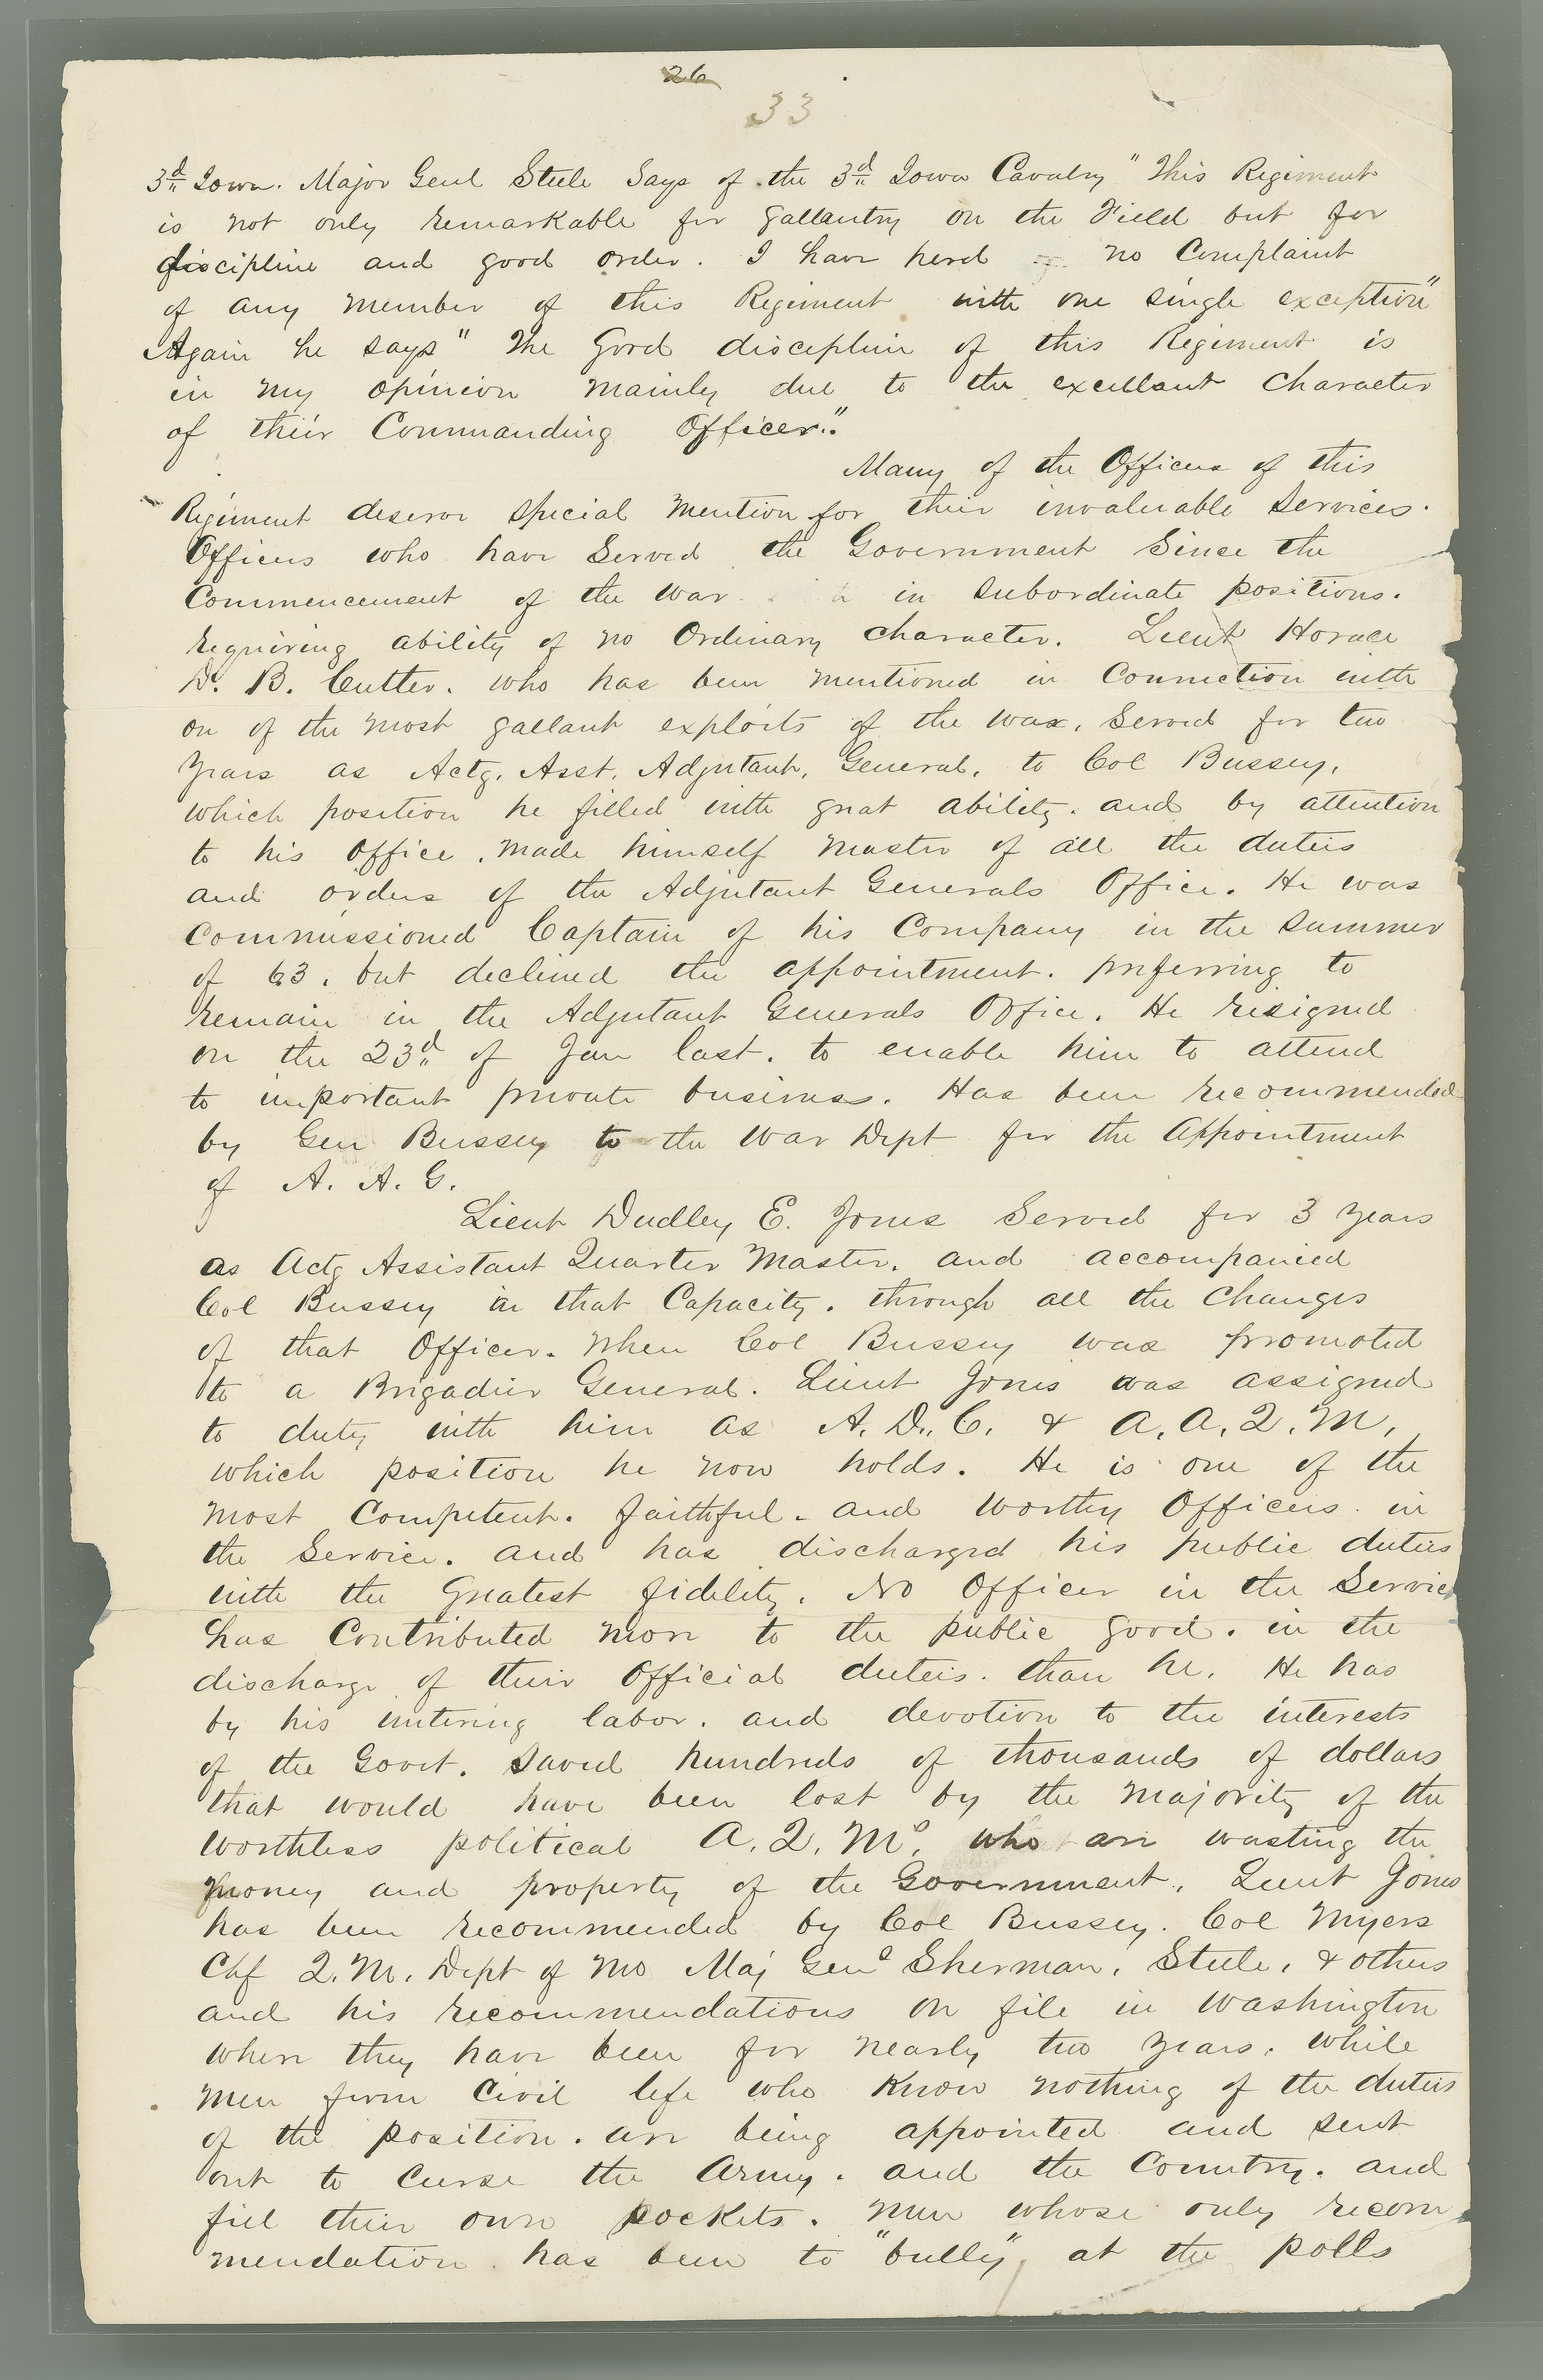 26
33
3d Iowa. Major Genl Steele Says of the 3d Iowa Cavalry "This Regiment
is not only remarkable for gallantry on the Field but for
discipline and good order. I have herd no Complaint
of any member of this Regiment with one single exception"
Again he says "The Good discipline of this Regiment is
in my opinion mainly due to the excellant Character
of their Commanding Officer."
Many of the Officers of this
Regiment deserve special mention for their invaluable services.
Officers who have Served the Government Since the
Commencement of the war in subordinate positions.
requiring ability of no Ordinary character. Lieut Horace
D. B. Cutter. who has been mentioned in Connection with
on of the most gallant exploits of the war, Served for two
years as Actg. Asst. Adjutant, General, to Col Bussey,
which position he filled with great ability. and by attention
to his Office. made himself master of all the duties
and orders of the Adjutant Generals Office. He was
Commissioned Captain of his Company in the Summer
of 63. but declined the appointment. preferring to
remain in the Adjutant Generals Office. He resigned
on the 23d of Jan last. to enable him to attend
to important private business. Has been recommended
by Gen Bussey to the War Dept for the Appointment
of A. A. G.
Lieut Dudley E. Jones Served for 3 years
as Actg Assistant Quarter Master. and accompanied
Col Bussey in that Capacity. through all the Changes
of that Officer. When Col Bussey was promoted
to a Brigadier General. Lieut Jones was assigned
to duty with him as A. D. C. & A. A. Q. M.
which position he now holds. He is one of the
most Competent. faithful. and worthy Officers in
the Service. and has discharged his public duties
with the Greatest fidelity. No Officer in the Service
has Contributed more to the public good. in the
discharge of their Official duties. than he. He has
by his untiring labor. and devotion to the interests
of the Govt. saved hundreds of thousands of dollars
that would have been lost by the majority of the
worthless political A. Q. Ms. who are wasting the
money and property of the Government. Lieut Jones
has been recommended by Col Bussey. Col Myers
Chf Q. M. Dept of Mo Maj Gens Sherman, Steele, & others
and his recommendations on file in Washington
where they have been for nearly two years. while
men from Civil life who Know nothing of the duties
of the position. are being appointed and sent
out to Curse the Army. and the Country. and
fill their own pockets. Men whose only recom
mendation has been to "bully" at the polls